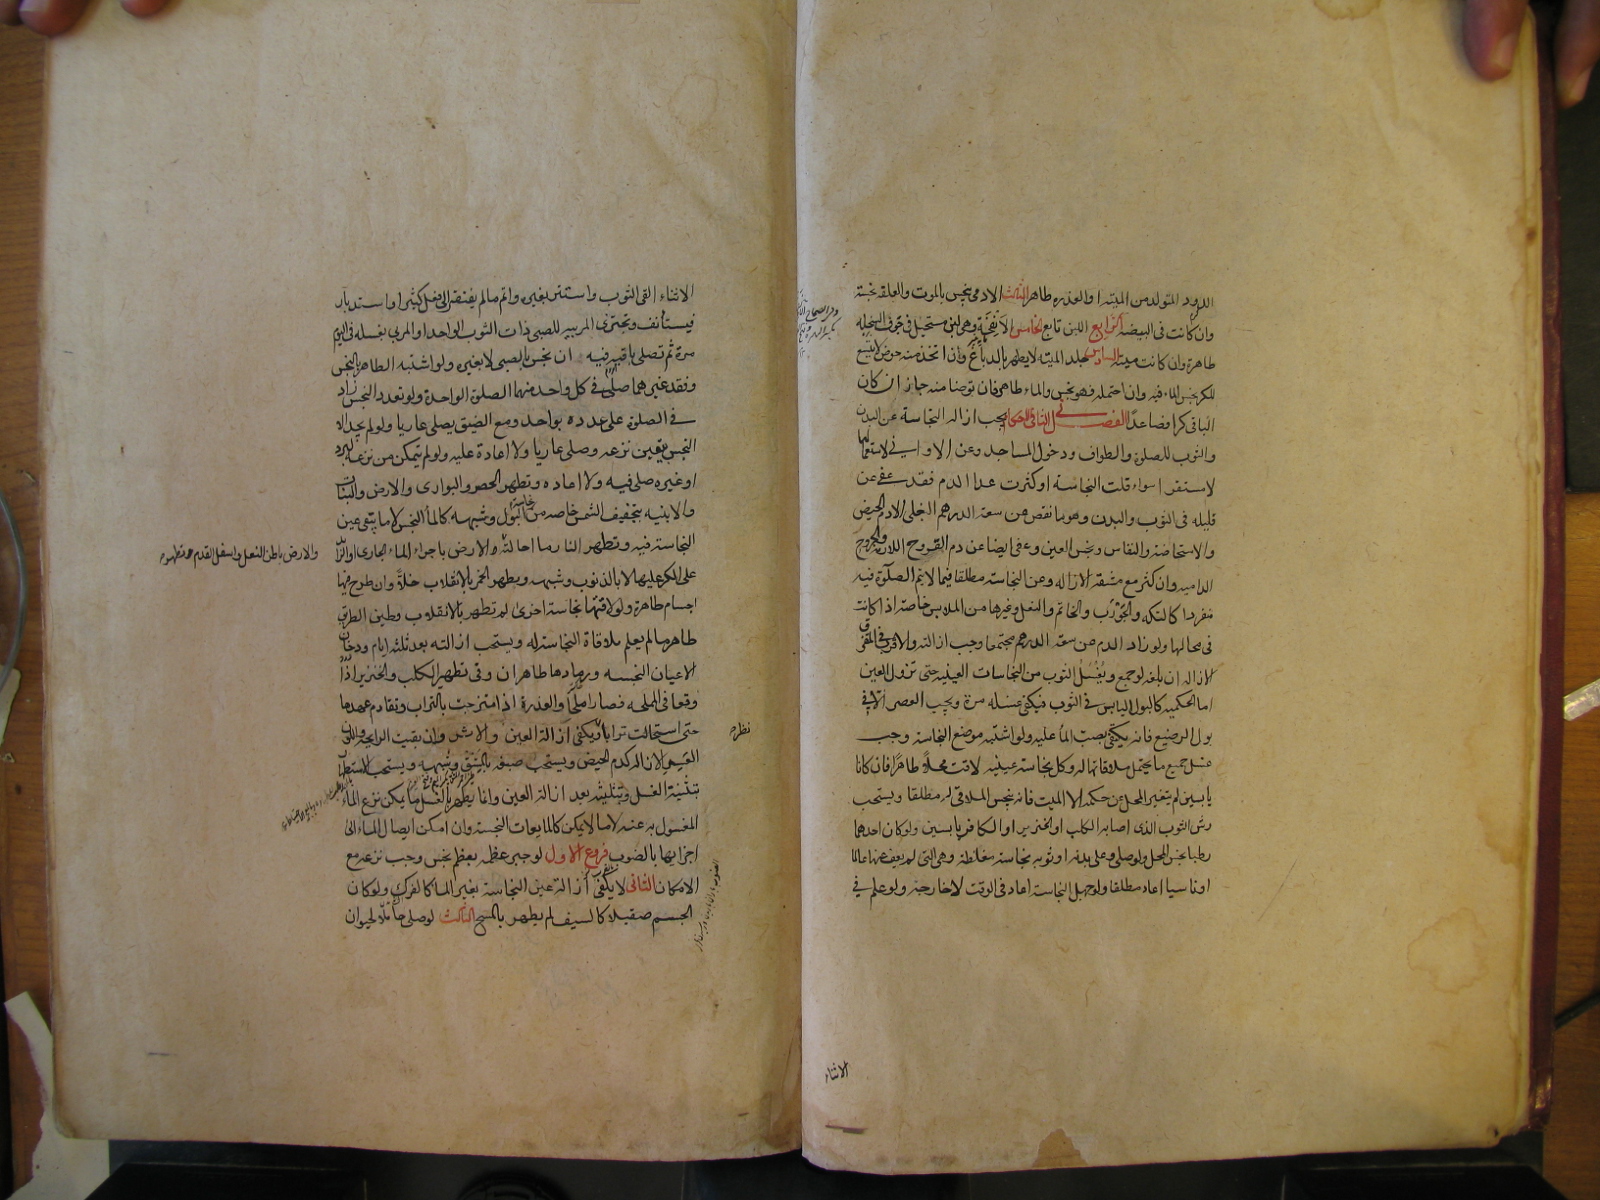 الدود المتولد من الميتة او العذرة طاهر الثالث الادمى ينجس بالموت والعلقة نجسة
وان كانت فى البيضة الرابع اللبن تابع الخامس الانفحة وهى لبن مستحيل فى جوف السخلة
طاهرة وان كانت ميتة السادس جلد الميتة لا يطهر بالدباغ وان اتخذ منه حوض لا يتسع
للكر نجس الماء فيه وان احتمله فهو نجس والماء طاهر فان توضا منه جاز ان كان
الباقى كرا فصاعدا الفصل الثانى فى الاحكام يجب ازالة النجاسة عن البدن
والثوب للصلوة والطواف ودخول المساجد وعن الاوانى لاستعمالها
لا مستقرا سواء قلت النجاسة او كثرت عدا الدم فقد عفى عن
قليله فى الثوب والبدن وهو ما نقص من سعة الدرهم البغلى الا دم الحيض
والاستحاضة والنفاس ونجس العين وعفى ايضا عن دم القروح اللازمة والجروح
الدامية وان كثر مع مشقة الازالة وعن النجاسة مطلقا فيما لا يتم الصلوة فيه
منفردا كالتكة والجورب والخاتم والنعل وغيرها من الملابس خاصة اذا كانت
فى محالها ولو زاد الدم عن سعة الدرهم مجتمعا وجب ازالته والاقرب فى المتفرق
الازالة ان بلغه لو جمع ويغسل الثوب من النجاسات العينية حتى تزول العين
اما الحكمية كالبول اليابس فى الثوب فيكفى غسله مرة ويجب العصر الا فى
بول الرضيع فانه يكفى صب الماء عليه ولو اشتبه موضع النجاسة وجب
غسل جميع ما يحتمل ملاقاتها له وكل نجاسة عينية لاقت محلا طاهرا فان كانا
يابسين لم يتغير المحل عن حكمه الا الميت فانه ينجس الملاقى له مطلقا ويستحب
رش الثوب الذى اصابه الكلب او الخنزير او الكافر يابسين ولو كان احدهما
رطبا نجس المحل ولو صلى وعلى بدنه او ثوبه نجاسة مغلظة وهى التى لم يعف عنها عالما
او ناسيا اعاد مطلقا ولو جهل النجاسة اعاد فى الوقت لا خارجه ولو علم فى
الاثناء
الاثناء القى الثوب واستتر بغيره واتم ما لم يفتقر الى فعل كثير او استدبار
فيستأنف وتجتزى المربية للصبى ذات الثوب الواحد او المربى بغسله فى اليوم
مرة ثم تصلى باقيه فيه ان نجس بالصبى لا بغيره ولو اشتبه الطاهر بالنجس
وفقد غيرهما صلى فى كل واحد منهما الصلوة الواحدة ولو تعدد النجس زاد
فى الصلوة على عدده بواحد ومع الضيق يصلى عاريا ولو لم يجد الا
النجس تعين نزعه وصلى عاريا ولا اعادة عليه ولو لم يتمكن من نزعه لبرد
او غيره صلى فيه ولا اعادة وتطهر الحصر والبوارى والارض والنبات
والابنية بتجفيف الشمس خاصة من نجاسة البول وشبهه كالماء النجس لا ما يبقى عين
النجاسة فيه وتطهر النار ما احالته والارض باجراء الماء الجارى او الزائد
والارض باطن النعل واسفل القدم مع تطهره
على الكر عليها لا بالذنوب وشبهه ويطهر الخمر بالانقلاب خلا وان طرح فيها
اجسام طاهرة ولو لاقتها نجاسة اخرى لم تطهر بالانقلاب وطين الطريق
طاهر ما لم يعلم ملاقاة النجاسة له ويستحب ازالته بعد ثلثة ايام ودخان
الاعيان النجسة ورمادها طاهران وفى تطهير الكلب والخنزير اذا
وقعا فى الملحة فصارا ملحا والعذرة اذا امتزجت بالتراب وتقادم عهدها
حتى استحالت ترابا نظر ويكفى ازالة العين والاثر وان بقيت الرايحة واللون
العسر الازالة كدم الحيض ويستحب صبغه بالمشق وشبهه ويستحب الاستظهار
بتثنية الغسل وتثليثه بعد ازالة العين وانما يطهر بالغسل ما يمكن نزع الماء
المغسول به عنه لا ما لا يمكن كالمايعات النجسة وان امكن ايصال الماء الى
اجزائها بالضرب فروع الاول لو جبر عظمه بعظم نجس وجب نزعه مع
الامكان الثانى لا يكفى ازالة عين النجاسة بغير الماء كالفرك ولو كان
الجسم صقيلا كالسيف لم يطهر بالمسح الثالث لو صلى حاملا لحيوان